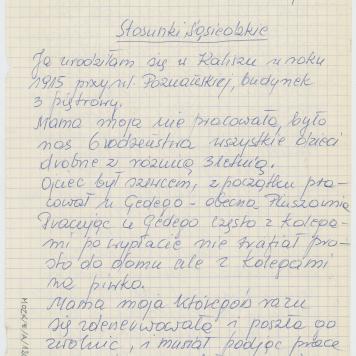 Stosunki Sąsiedzkie
Ja urodziłam się w Kaliszu w roku
1915 przy ul. Poznańskiej, budynek
3 piętrowy.
Mama moja nie pracowała, było
nas 6 rodzeństwa wszystkie dzieci
drobne z różnicą 3 letnią.
Ojciec był szewcem, z początku pra-
cował u Gedego - obecna Pluszownia
Pracując u Gedego często z kolega-
mi po wypłacie nie trafiał pro-
sto do domu ale z kolegami
na piwko.
Mama moja któregoś razu
się zdenerwowała i poszła go
zwolnić, i musiał podjąć pracę